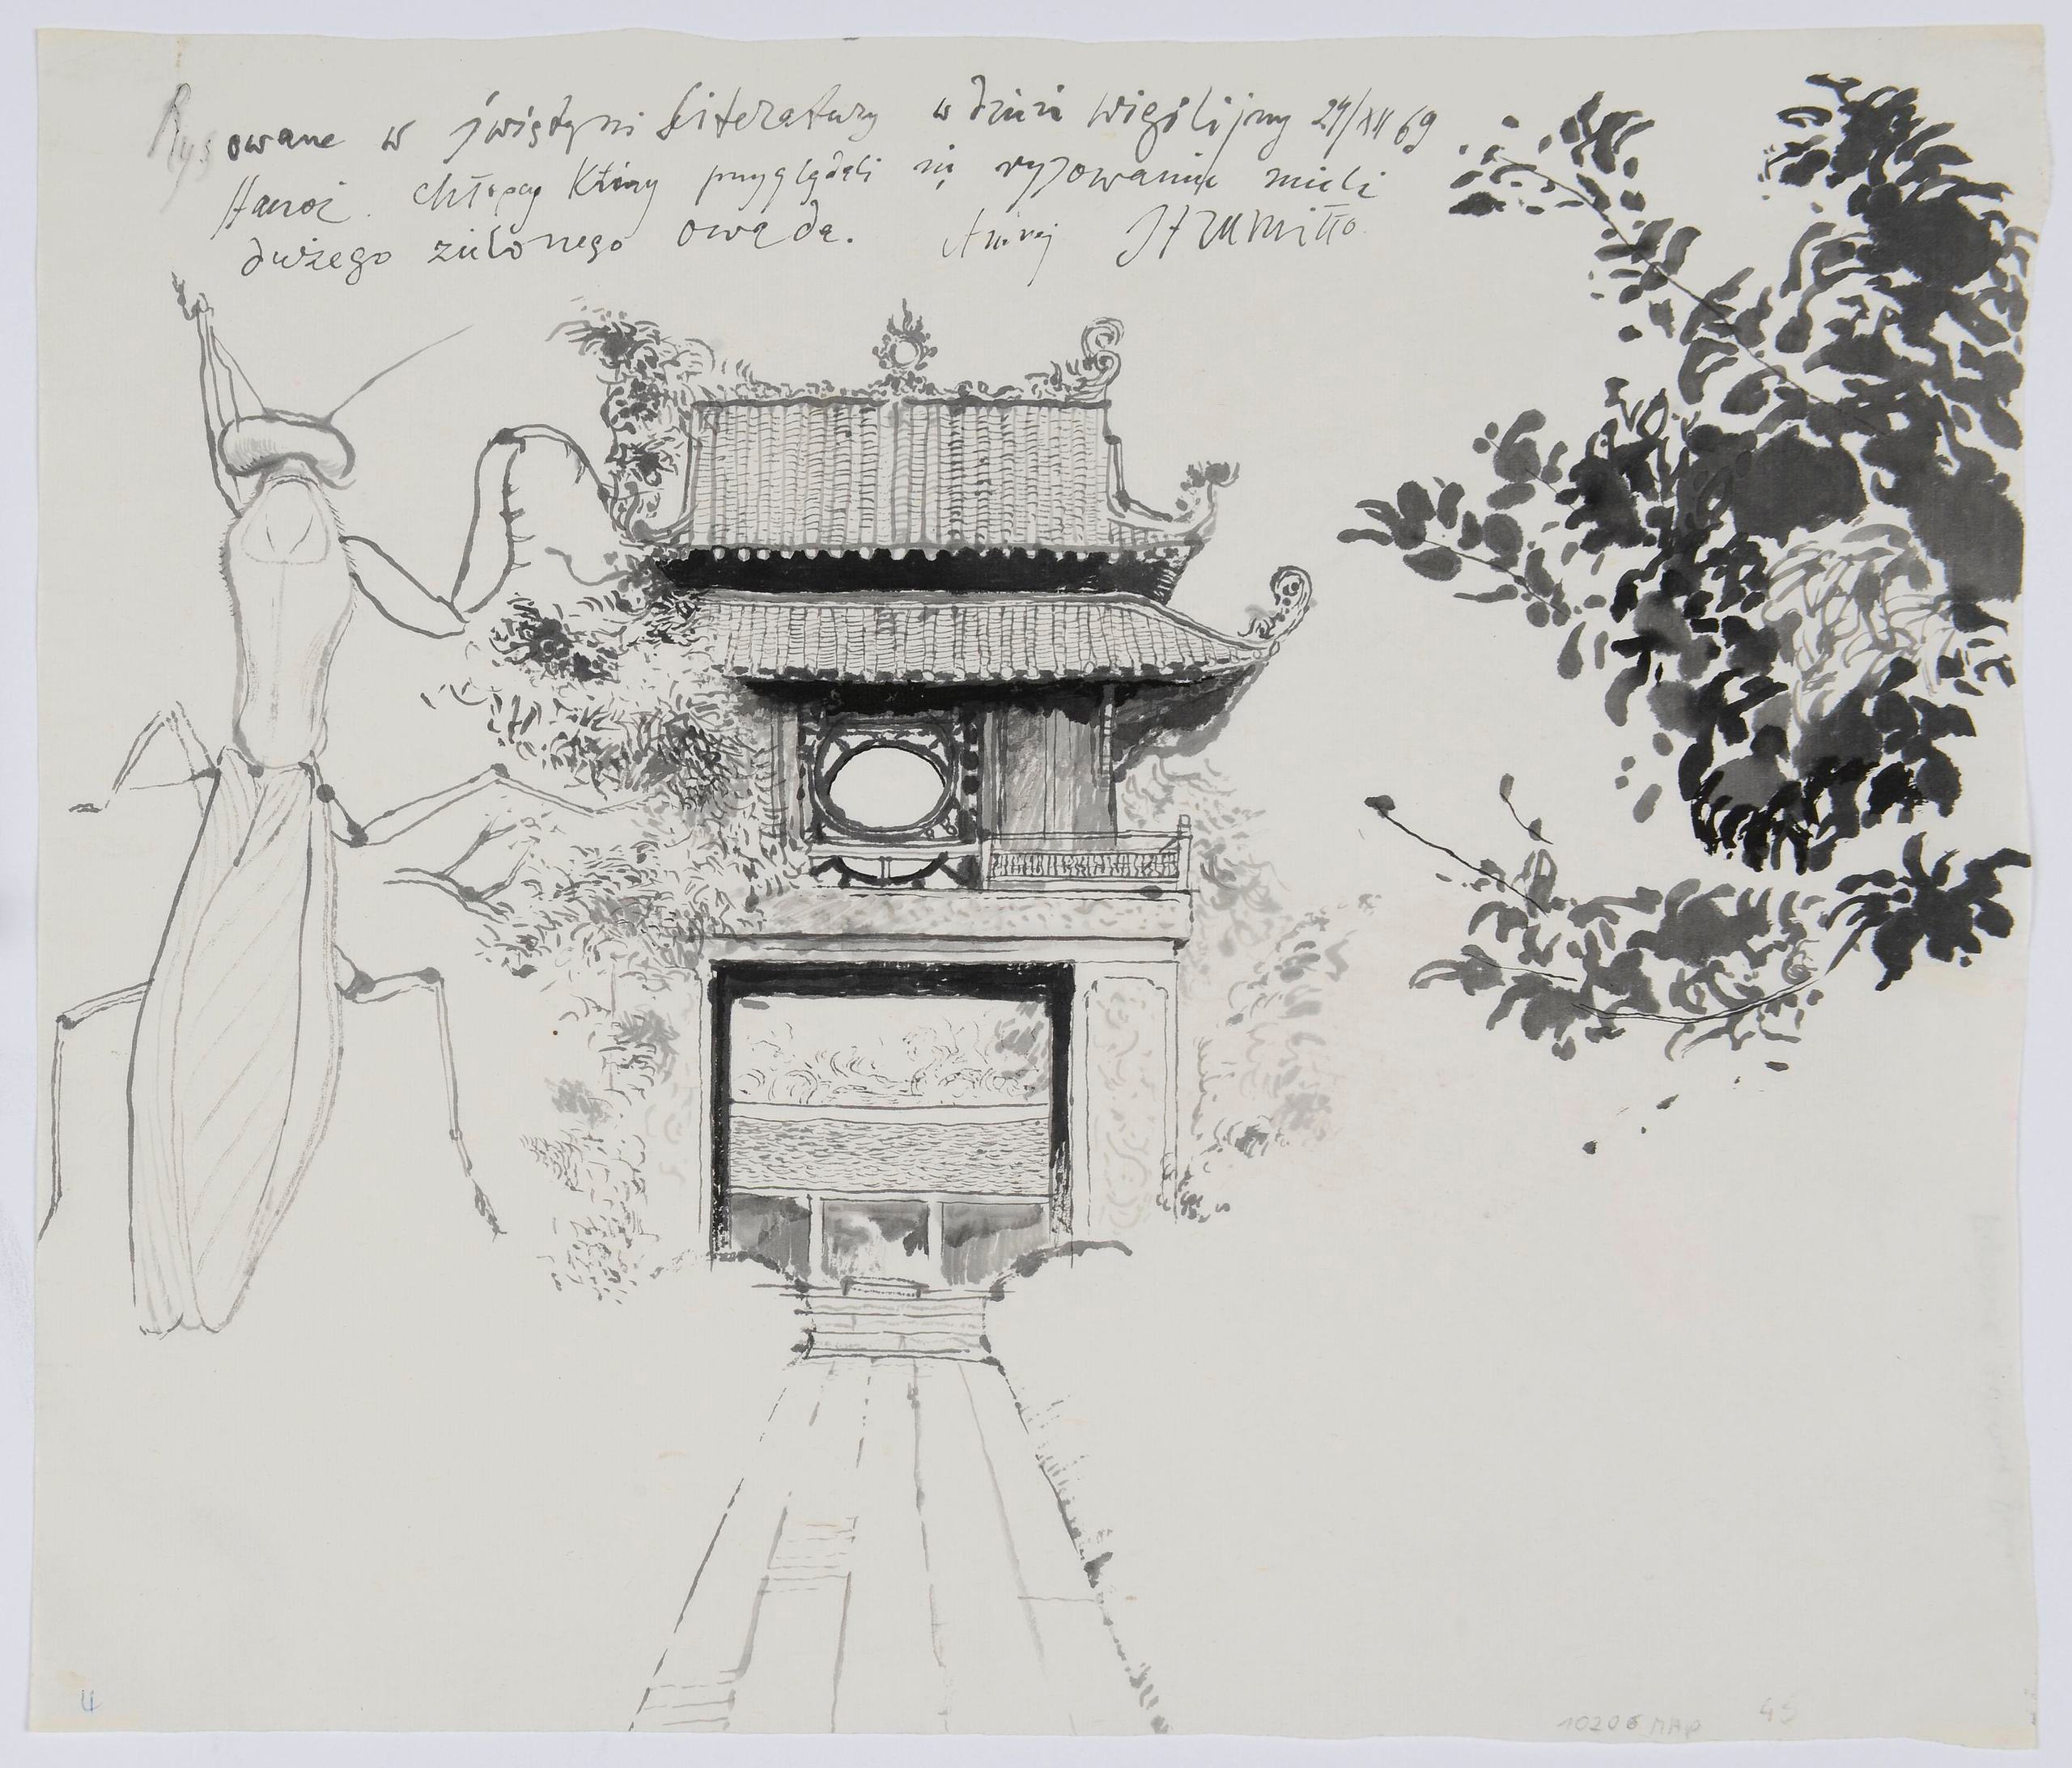 Rysowane w świątyni Literatury w dzień wigilijny 24/XII 69
Hanoi. Chłopcy Którzy przyglądali się rysowaniu mieli
dużego zielonego owada. Andrzej Strumiłło.
4
10206 MAP 45